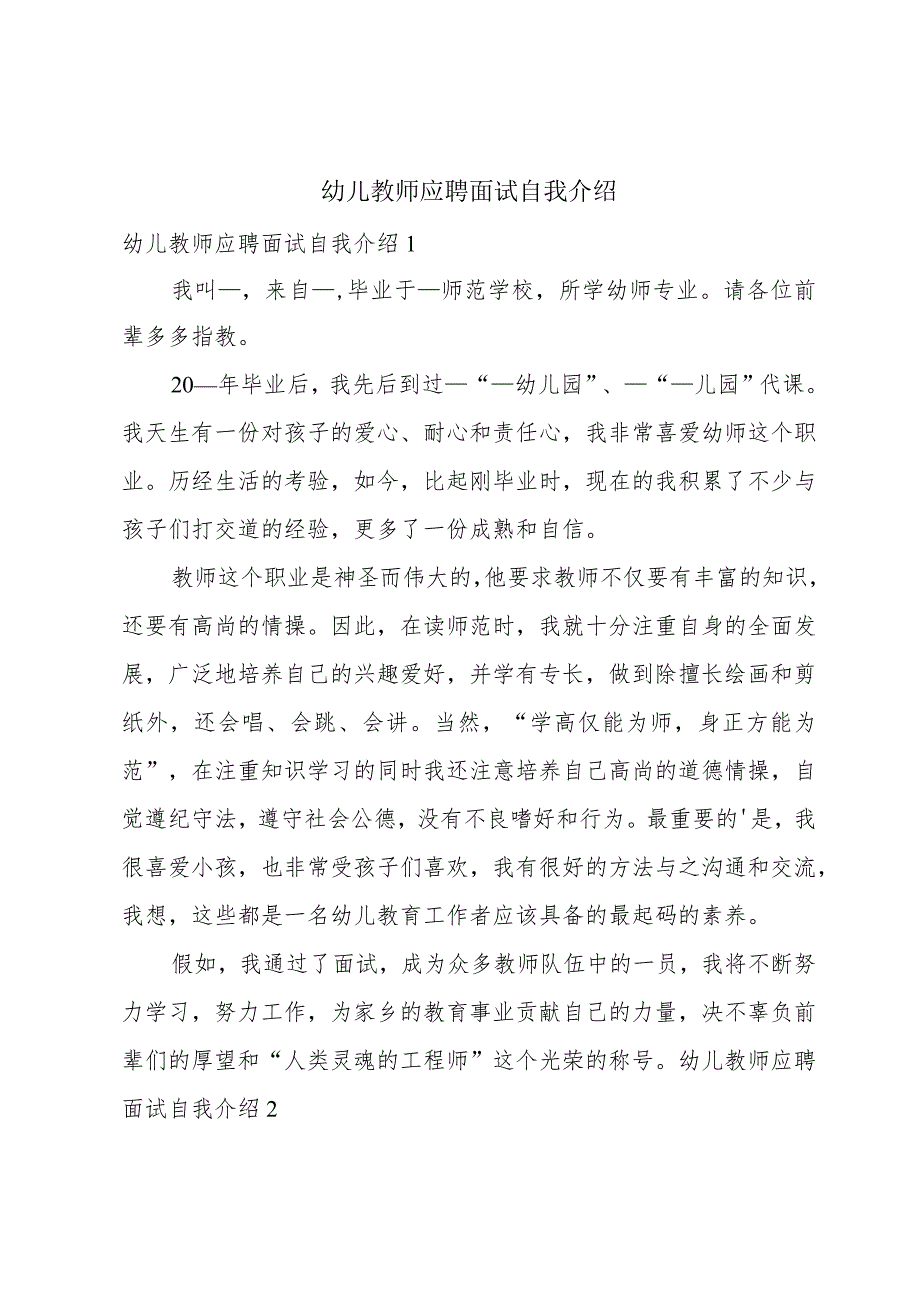 幼儿教师应聘面试自我介绍
幼儿教师应聘面试自我介绍1
我叫—，来自—,毕业于—师范学校，所学幼师专业。请各位前
辈多多指教。
20—年毕业后，我先后到过—“—幼儿园”、—“—儿园”代课。
我天生有一份对孩子的爱心、耐心和责任心，我非常喜爱幼师这个职
业。历经生活的考验，如今，比起刚毕业时，现在的我积累了不少与
孩子们打交道的经验，更多了一份成熟和自信。
教师这个职业是神圣而伟大的,他要求教师不仅要有丰富的知识，
还要有高尚的情操。因此，在读师范时，我就十分注重自身的全面发
展，广泛地培养自己的兴趣爱好，并学有专长，做到除擅长绘画和剪
纸外，还会唱、会跳、会讲。当然，“学高仅能为师，身正方能为
范”，在注重知识学习的同时我还注意培养自己高尚的道德情操，自
觉遵纪守法，遵守社会公德，没有不良嗜好和行为。最重要的'是，我
很喜爱小孩，也非常受孩子们喜欢，我有很好的方法与之沟通和交流，
我想，这些都是一名幼儿教育工作者应该具备的最起码的素养。
假如，我通过了面试，成为众多教师队伍中的一员，我将不断努
力学习，努力工作，为家乡的教育事业贡献自己的力量，决不辜负前
辈们的厚望和“人类灵魂的工程师”这个光荣的称号。幼儿教师应聘
面试自我介绍2